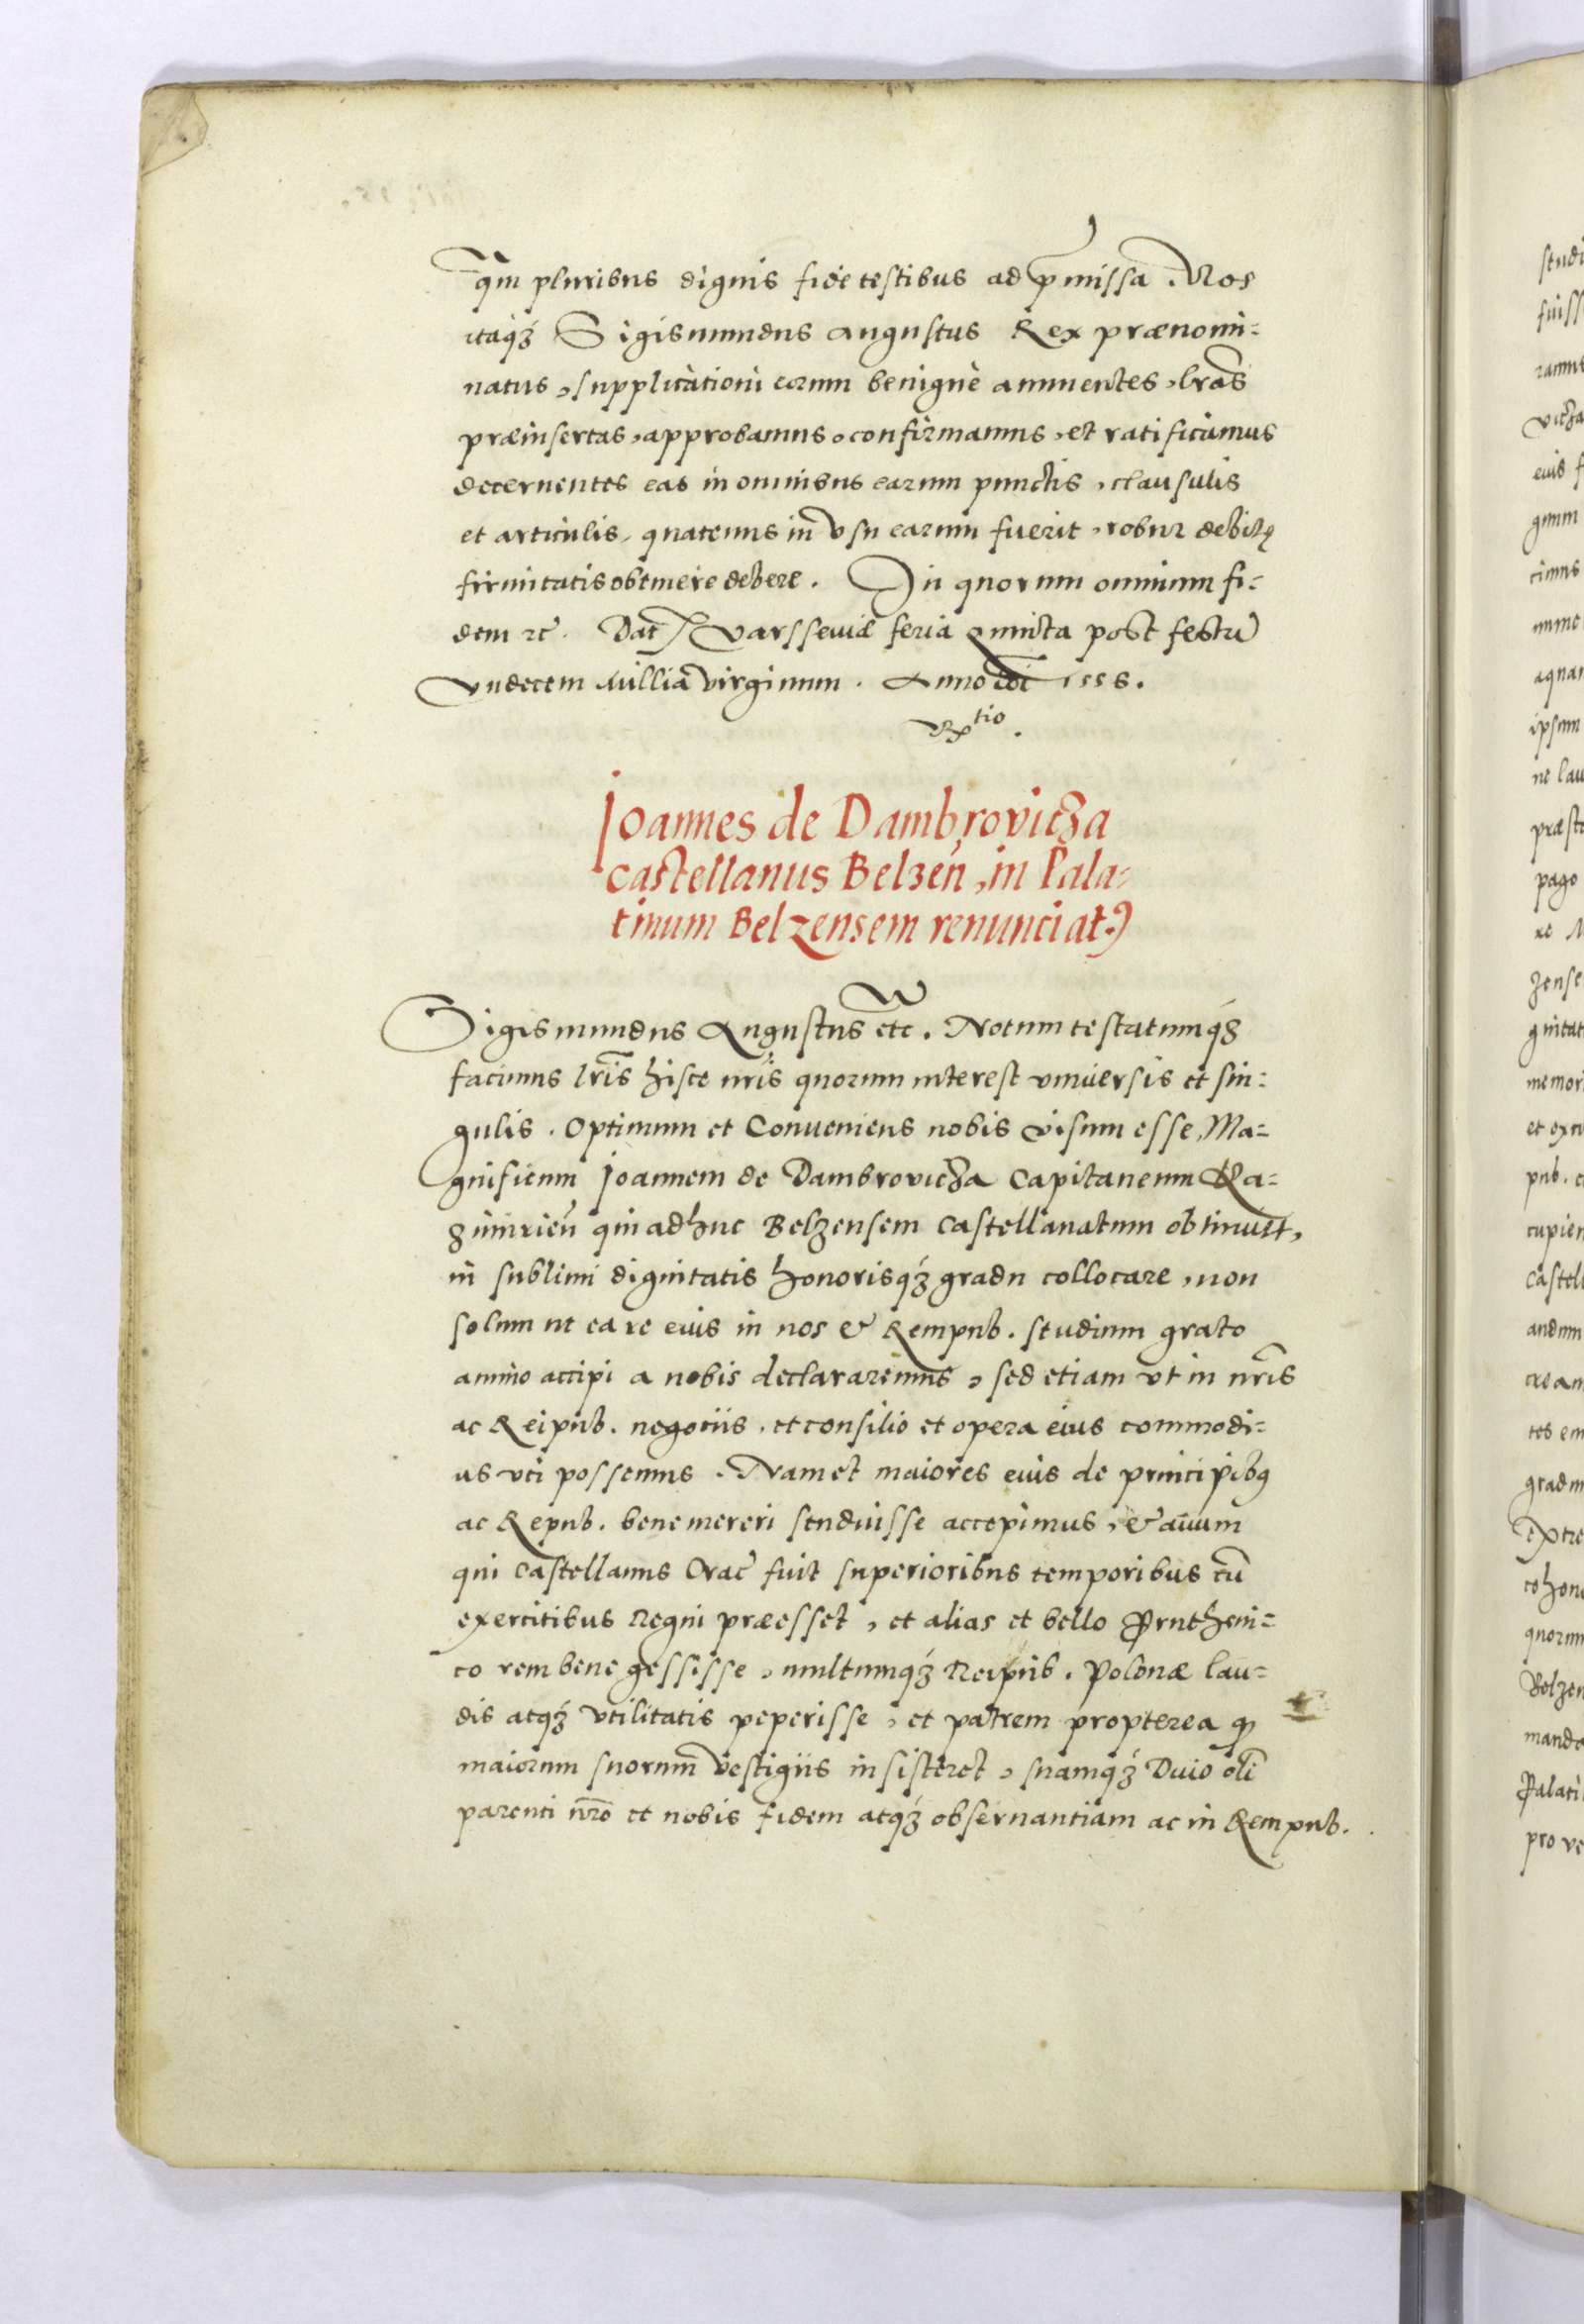 qm̃ pluribus dignis fide testibus ad pmissa. Nos
itaqꝫ Sigismundus Augustus Rex prænomi=
natus, supplicationi eorum benigne annuentes, lrãs
præinsertas, approbamus, confirmamus, et ratificamus
decernentes eas in omnibus earum punctis, clausulis
et articulis, quatenus in vsu earum fuerit, robur debitę
firmitatis obtinere debere. In quorum omnium fi=
dem ꝛc̃. Dat Varsseuiæ feria quinta post festũ
Vndecem Millia virginum. Anno dñi 1558.
Rxtio.
Joannes de Dambrovicza
castellanus Belzen̄, in Pala=
tinum Belzensem renunciat.
Sigismundus Augustus etc. Notum testatumqꝫ
facimus lrĩs hisce nrĩs quorum interest vniuersis et sin=
gulis. Optimum et Conueniens nobis visum esse, Ma=
gnificum Joannem de Dambrovicza Capitaneum Ra=
zimrien̄ qui adhuc Belzensem castellanatum obtinuit,
in sublimi dignitatis honorisqꝫ gradu collocare, non
solum ut ea re eius in nos & Rempub. studium grato
animo accipi a nobis declararemus, sed etiam vt in nrĩs
ac Reipub. negotiis, et consilio et opera eius commodi=
us vti possemus. Nam et maiores eius de principibꝰ
ac Repub. bene mereri studuisse accepimus, & auum
qui castellanus Crac̃ fuit superioribus temporibus cũ
exercitibus Regni præesset, et alias et bello Prutheni=
co rem bene gessisse, multumqꝫ Reipub. Polonæ lau=
dis atqꝫ vtilitatis peperisse, et patrem propterea qꝫ
maiorum suorum vestigiis insisteret, suamqꝫ Diuo olĩ
parenti nrõ et nobis fidem atqꝫ obseruantiam ac in Rempub.